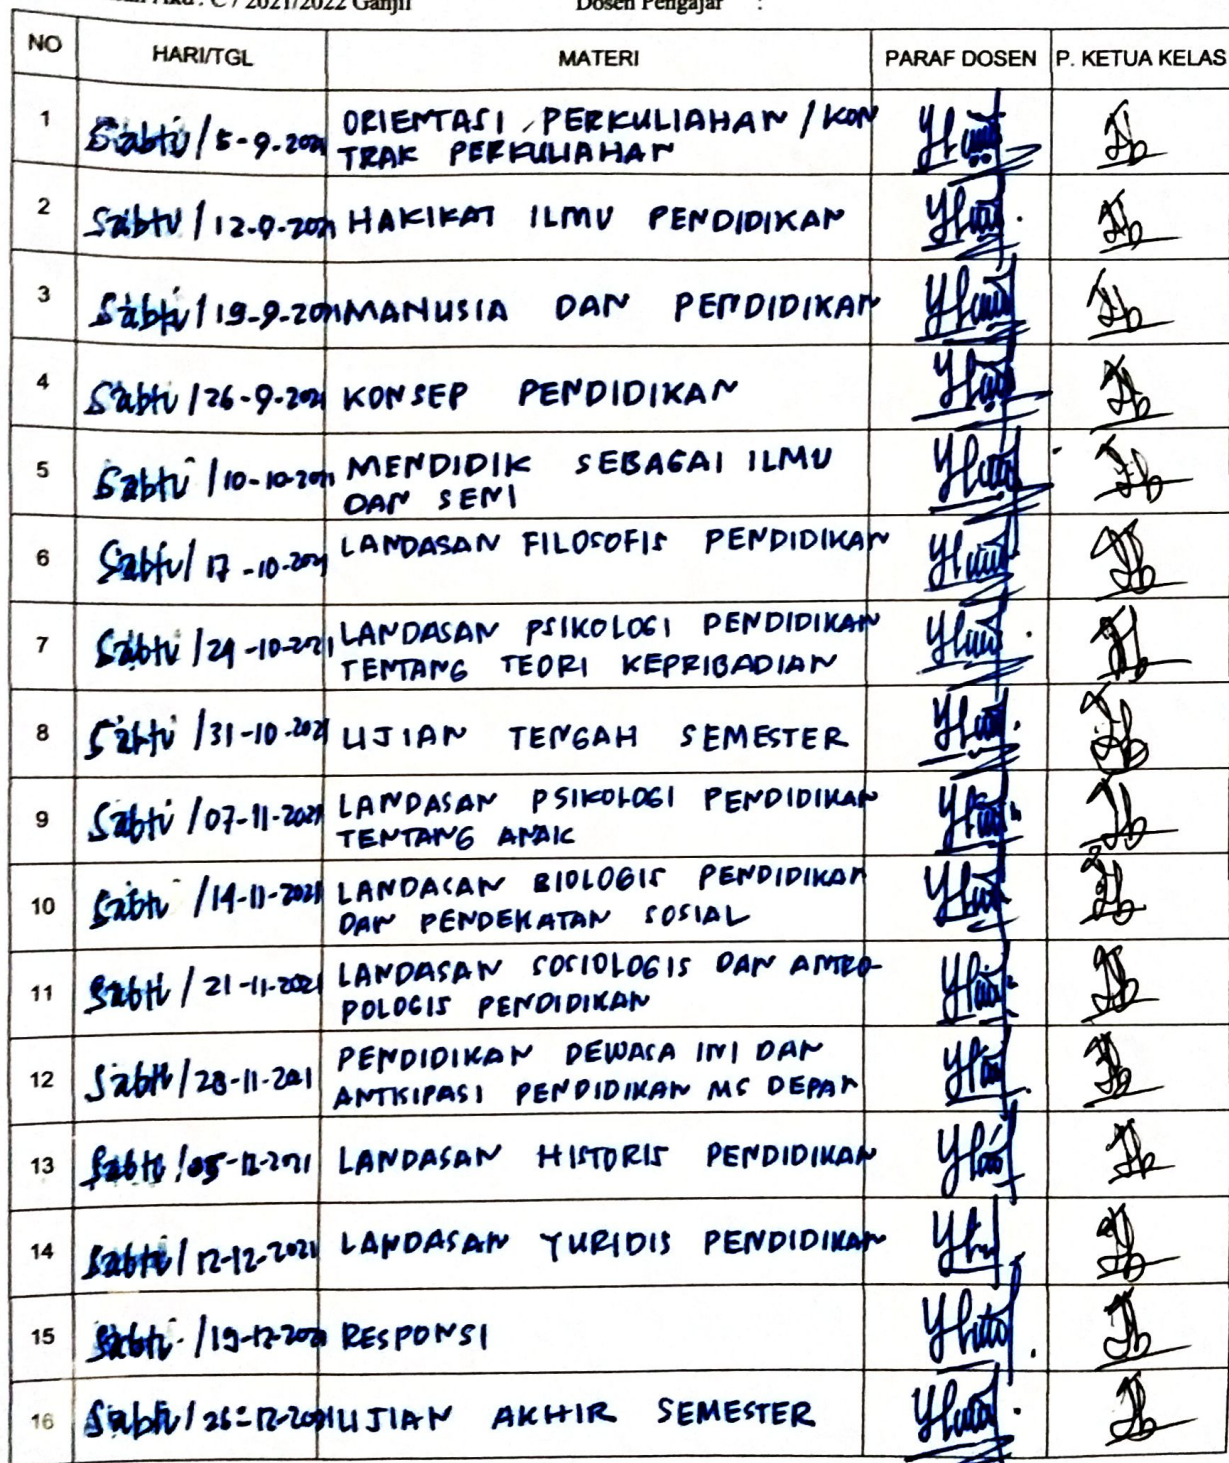 C / 2021/2022 Ganjil Dosen Pengajar :
NO HARI/TGL MATERI PARAF DOSEN P. KETUA KELAS
1 Sabtu / 5-9-2021 ORIENTASI PERKULIAHAN / KON
TRAK PERKULIAHAN
2 Sabtu / 12-9-2021 HAKIKAT ILMU PENDIDIKAN
3 Sabtu / 19-9-2021 MANUSIA DAN PENDIDIKAN
4 Sabtu / 26-9-2021 KONSEP PENDIDIKAN
5 Sabtu / 10-10-2021 MENDIDIK SEBAGAI ILMU
DAN SENI
6 Sabtu / 17-10-2021 LANDASAN FILOSOFIS PENDIDIKAN
7 Sabtu / 24-10-2021 LANDASAN PSIKOLOGI PENDIDIKAN
TENTANG TEORI KEPRIBADIAN
8 Sabtu / 31-10-2021 UJIAN TENGAH SEMESTER
9 Sabtu / 07-11-2021 LANDASAN PSIKOLOGI PENDIDIKAN
TENTANG ANAK
10 Sabtu / 14-11-2021 LANDASAN BIOLOGIS PENDIDIKAN
DAN PENDEKATAN SOSIAL
11 Sabtu / 21-11-2021 LANDASAN SOSIOLOGIS DAN ANTRO-
POLOGIS PENDIDIKAN
12 Sabtu / 28-11-2021 PENDIDIKAN DEWASA INI DAN
ANTISIPASI PENDIDIKAN MS DEPAN
13 Sabtu / 05-12-2021 LANDASAN HISTORIS PENDIDIKAN
14 Sabtu / 12-12-2021 LANDASAN YURIDIS PENDIDIKAN
15 Sabtu / 19-12-2021 RESPONSI
16 Sabtu / 26-12-2021 UJIAN AKHIR SEMESTER